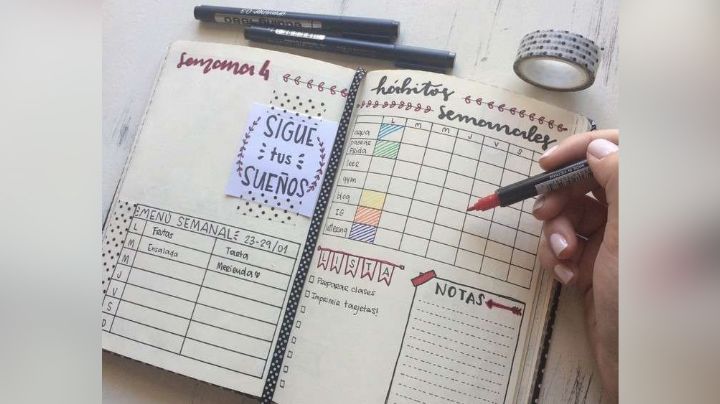 Semana 4
SIGUE
tus
SUEÑOS
MENÚ SEMANAL 23-29/01
L Fiatas Tarta
M Ensalada Merienda
M
J
V
S
D
hábitos
semanales
L M M J V S
agua
pasear
Frida
leer
gym
blog
IG
LISTA
Preparar clases
Imprimir tarjetas!
NOTAS